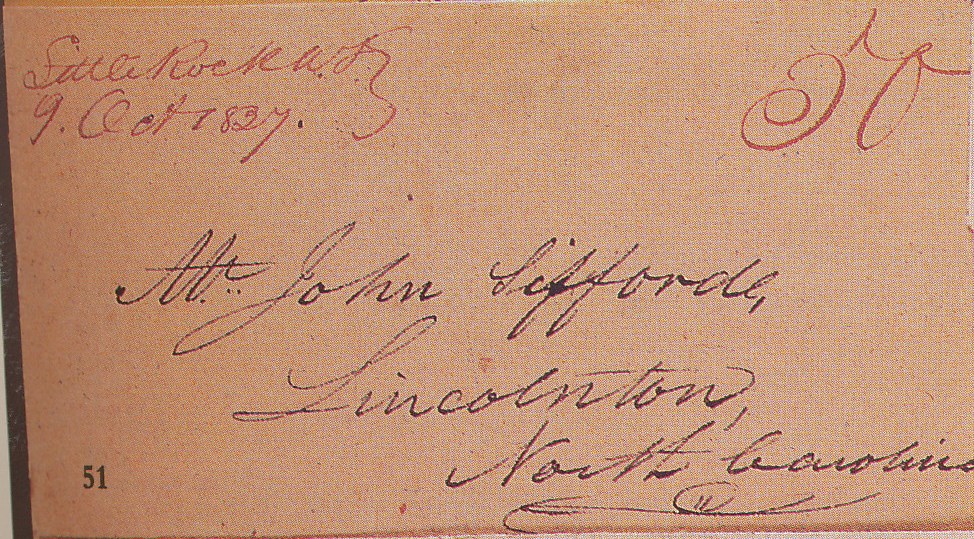 Little Rock A.T.
9. Oct 1827.
50
Mr. John Siffords,
Lincolnton,
North Carolina
51